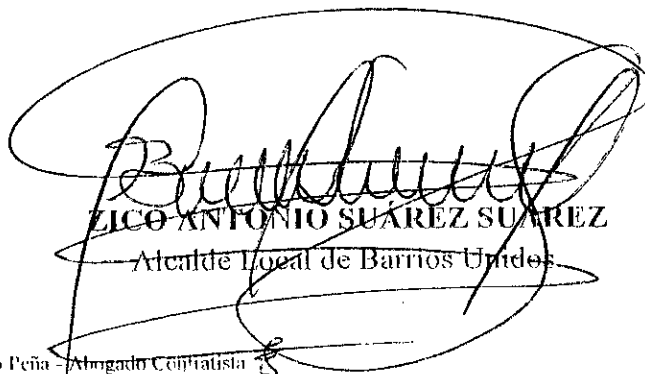 ZICO ANTONIO SUÁREZ SUÁREZ
Alcalde Local de Barrios Unidos
Peña - Abogado Contratista